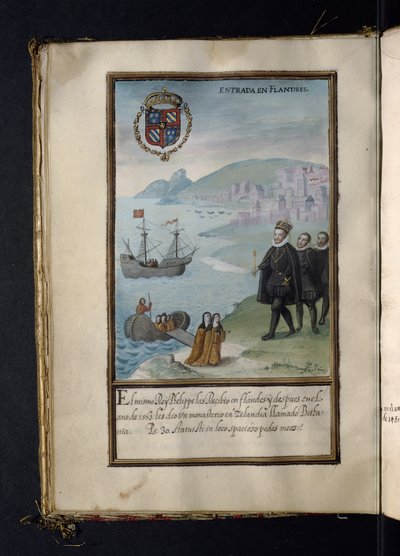 ENTRADA EN FLANDRES.
El mismo Rey Phelippe las Recibio en flandes y despues en el
ano de 1563. les dio vn monasterio en Zelandia llamado
nia. Ps. 30. Statuisti in loco spacioso pedes meos.